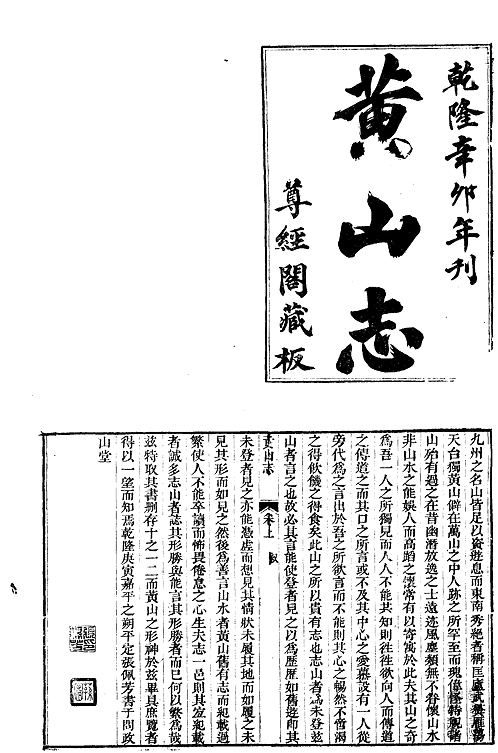 乾隆辛卯年刊
黃山志
尊經閣藏板
九州之名山皆足以資遊息而東南秀絕者稱匡廬武彝雁蕩
天台獨黃山僻在萬山之中人跡之所罕至而瑰偉怪特視諸
山殆有過之在昔幽潛放逸之士遠迹風塵類無不眷懷山水
非山水之能娛人而高蹈之懷常有以寄寓於此夫其山之奇
爲吾一人之所獨見而人人不能共知則徃徃欲向人而傳道
之傳道之而其口之所言或不及其中心之愛慕設有一人從
旁代爲之言出於吾之所欲言而不能則其心之暢然不啻渴
之得飲饑之得食矣此山之所以貴有志也志山者爲未登兹
山者言之也故必其言能使登者見之以爲歷歷如舊遊卽其
黃山志
卷上
叙
未登者見之亦能憑虛而想見其情狀未履其地而如履之未
見其形而如見之然後爲善言山水者黃山舊有志而紀載過
繁使人不能卒讀而懵具倦息之心生夫志一邑則其宐紀載
者誠多志山者誌其形勝與能言其形勝者而已何以繁爲哉
兹特取其書刪存十之一二而黃山之形神於兹畢具庶覽者
得以一望而知焉乾隆庚寅嘉平之朔平定張佩芳書于問政
山堂